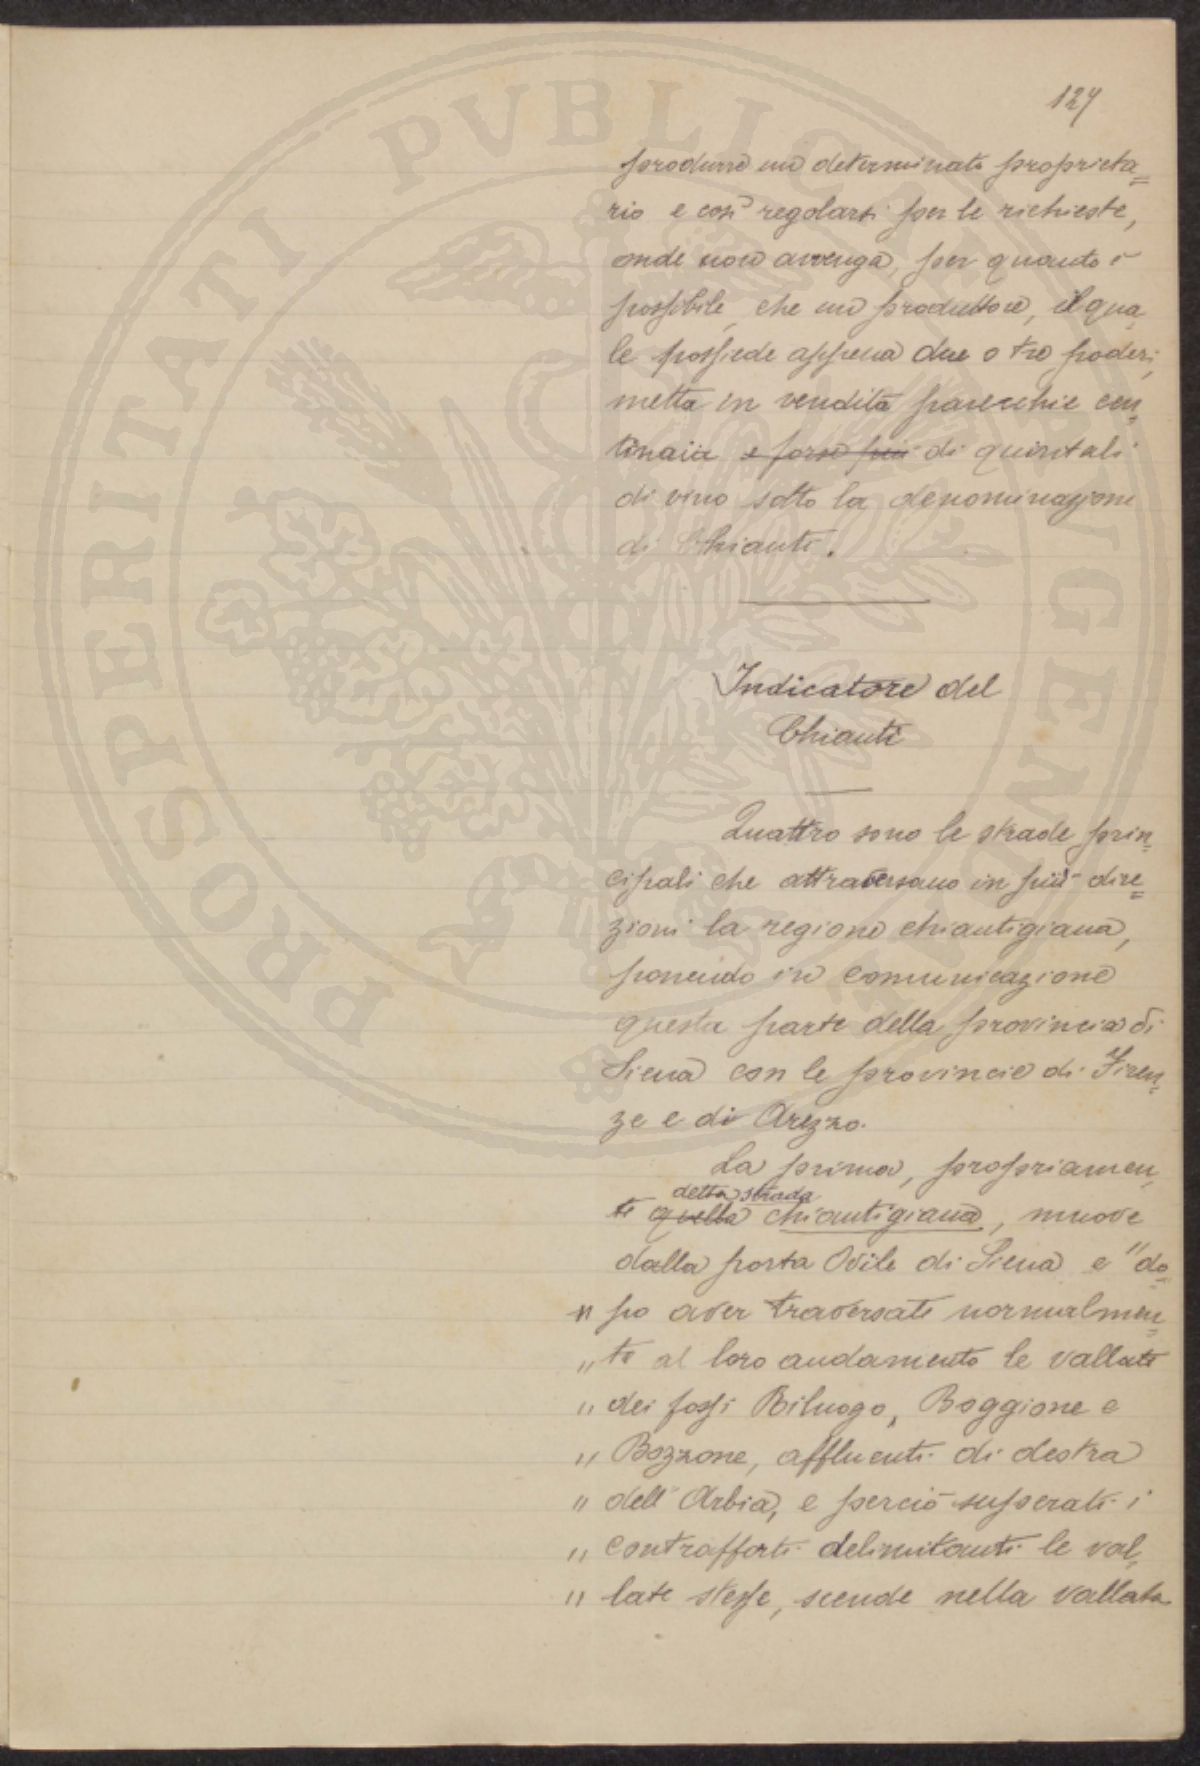 127
produrre un determinato proprieta=
rio e così regolarsi per le richieste,
onde non avvenga, per quanto è
possibile, che un produttore, il qua,
le possiede appena due o tre poderi,
metta in vendita parecchie cen,
tinaia e forse più di quintali
di vino sotto la denominazione
di Chianti.
Indicatore del
Chianti
Quattro sono le strade prin=
cipali che attraversano in più dire=
zioni la regione chiantigiana,
ponendo in comunicazione
questa parte della provincia di
Siena con le provincie di Firen=
ze e di Arezzo.
La prima, propriamen,
detta strada
te quella chiantigiana, muove
dalla porta Ovile di Siena e "do=
" po aver traversate normalmen=
" te al loro andamento le vallate
" dei fossi Riluogo, Boggione e
" Bozzone, affluenti di destra
" dell'Arbia, e perciò superati i
" contrafforti delimitanti le val,
" late stesse, scende nella vallata
PROSPERITATI PVBLICAE AVGENDAE